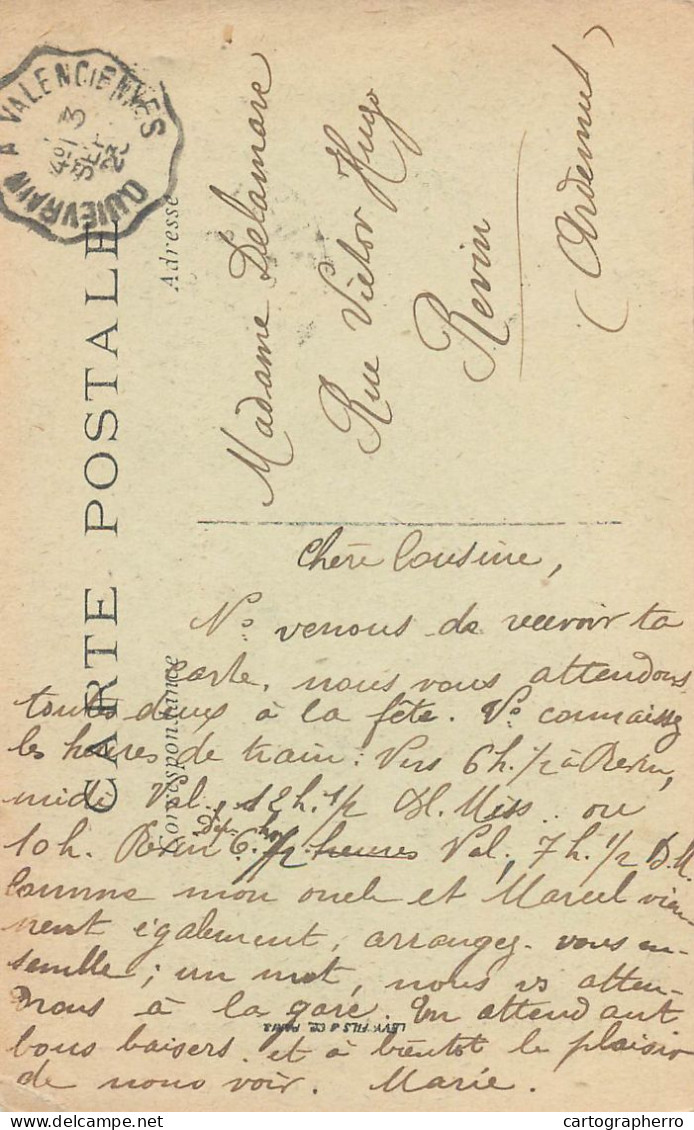 QUIEVRAIN A VALENCIENNES
3
SEPT
CARTE POSTALE
Correspondance
Adresse
Madame Delamare
Rue Victor Hugo
Revin
(Ardennes)
Chère Cousine,
Ns venons de recevoir ta
carte, nous vous attendons
toutes deux à la fête. Vs connaissez
les heures de train : Vers 6h. 1/2 à Revin,
midi Val., 12h. 1/2 Bl. Miss. ou
10h. Revin 6. 1/2 heures Val, 7h. 1/2 B.M.
Comme mon oncle et Marcel vien-
nent également, arrangez-vous en-
semble ; un mot, nous vs atten-
drons à la gare. En attendant
bons baisers et à bientôt le plaisir
de nous voir. Marie.
LÉVY FILS & Cie PARIS
cartographerro